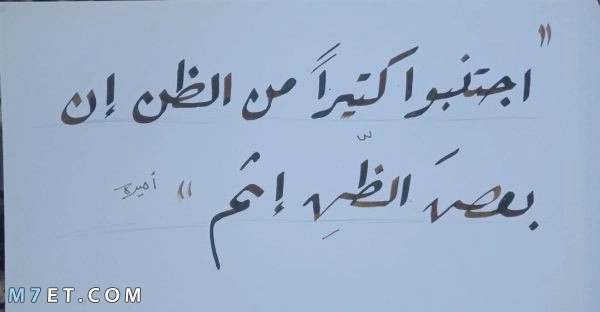 "اجتنبوا كثيراً من الظن إن
بعضَ الظّنِ إثم"
أميرة
M7ET.COM